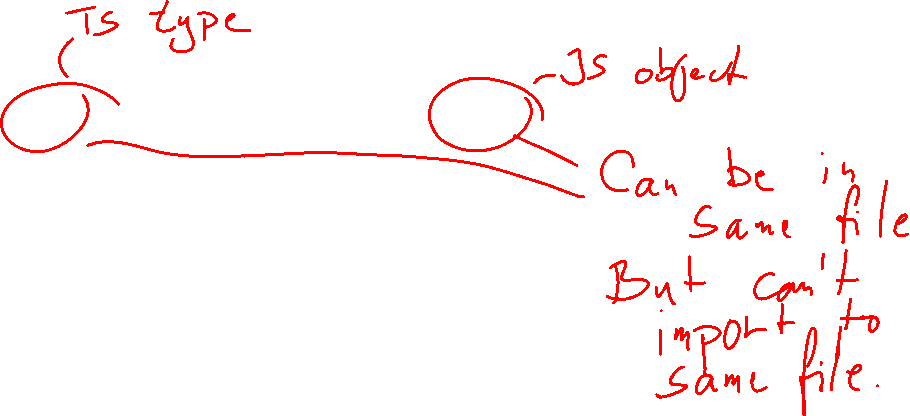 TS type
JS object
Can be in
same file
But can't
import to
same file.